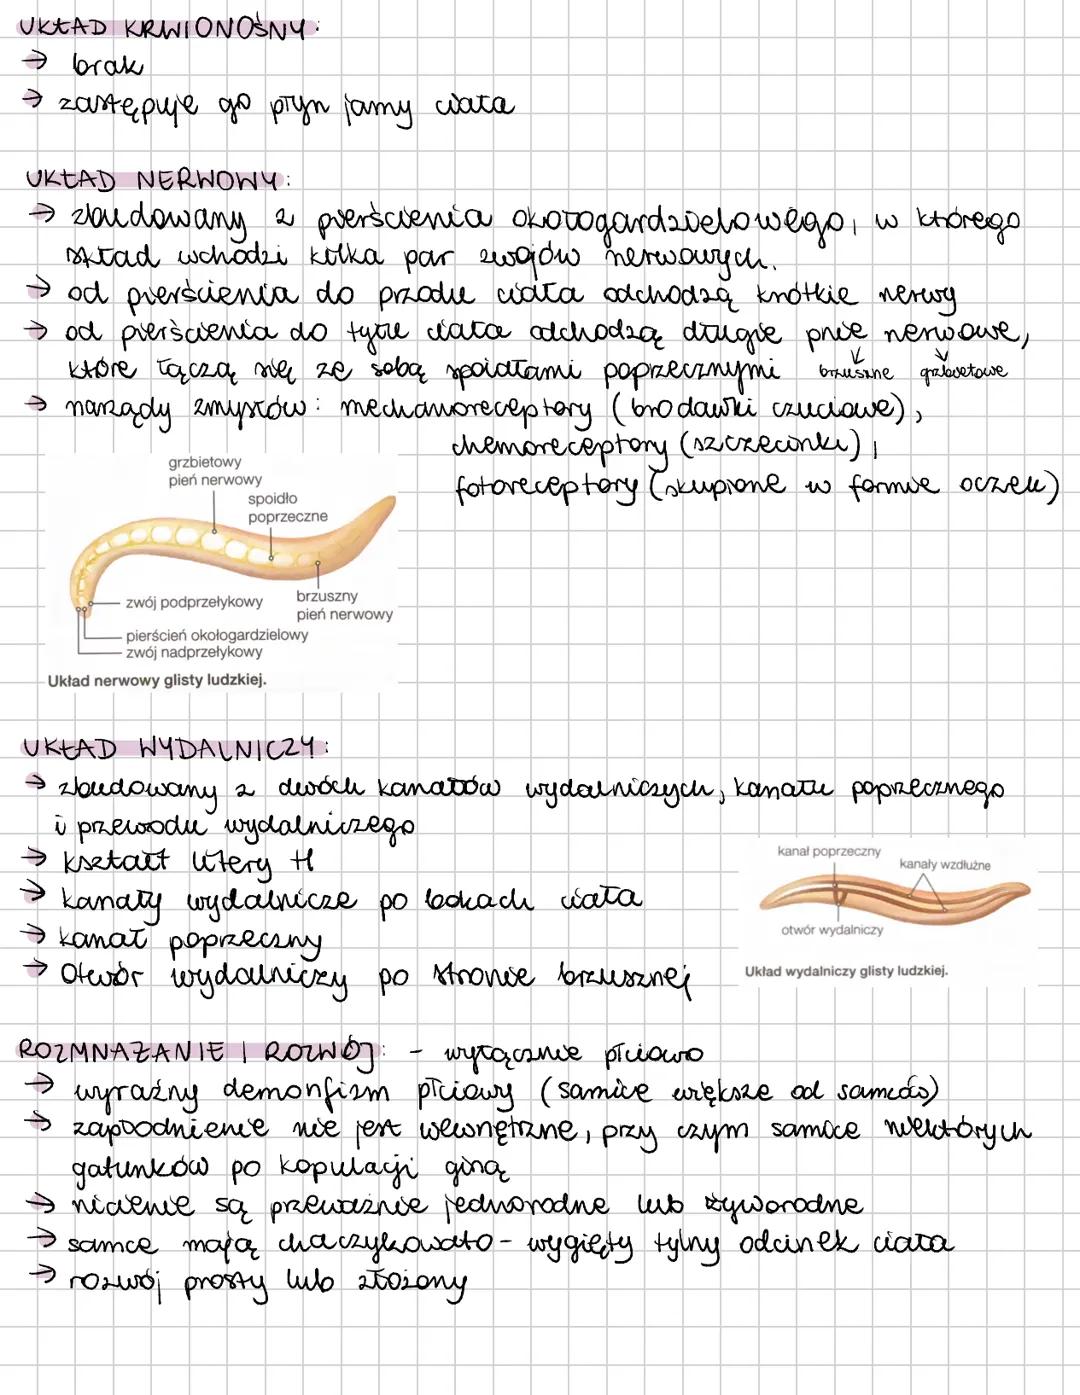 UKŁAD KRWIONOŚNY:
→ brak
→ zastępuje go płyn jamy ciała
UKŁAD NERWOWY:
→ zbudowany z pierścienia okołogardzielowego, w którego
skład wchodzi kilka par zwojów nerwowych.
→ od pierścienia do przodu ciała odchodzą krótkie nerwy
→ od pierścienia do tyłu ciała odchodzą długie pnie nerwowe,
które łączą się ze sobą spoidłami poprzecznymi brzuszne grzbietowe
→ narządy zmysłów: mechanoreceptory (brodawki czuciowe),
chemoreceptory (szczecinki),
fotoreceptory (skupione w formie oczek)
grzbietowy
pień nerwowy
spoidło
poprzeczne
zwój podprzełykowy
brzuszny
pień nerwowy
pierścień okołogardzielowy
zwój nadprzełykowy
Układ nerwowy glisty ludzkiej.
UKŁAD WYDALNICZY:
→ zbudowany z dwóch kanałów wydalniczych, kanału poprzecznego
i przewodu wydalniczego
→ kształt litery H
→ kanały wydalnicze po bokach ciała
→ kanał poprzeczny
→ Otwór wydalniczy po stronie brzusznej
kanał poprzeczny
kanały wzdłużne
otwór wydalniczy
Układ wydalniczy glisty ludzkiej.
ROZMNAŻANIE I ROZWÓJ: - wyłącznie płciowo
→ wyraźny demorfizm płciowy (samice większe od samców)
→ zapłodnienie nie jest wewnętrzne, przy czym samice niektórych
gatunków po kopulacji giną
→ nicienie są przeważnie jednorodne lub żyworodne
→ samce mają haczykowato - wygięty tylny odcinek ciała
→ rozwój prosty lub złożony